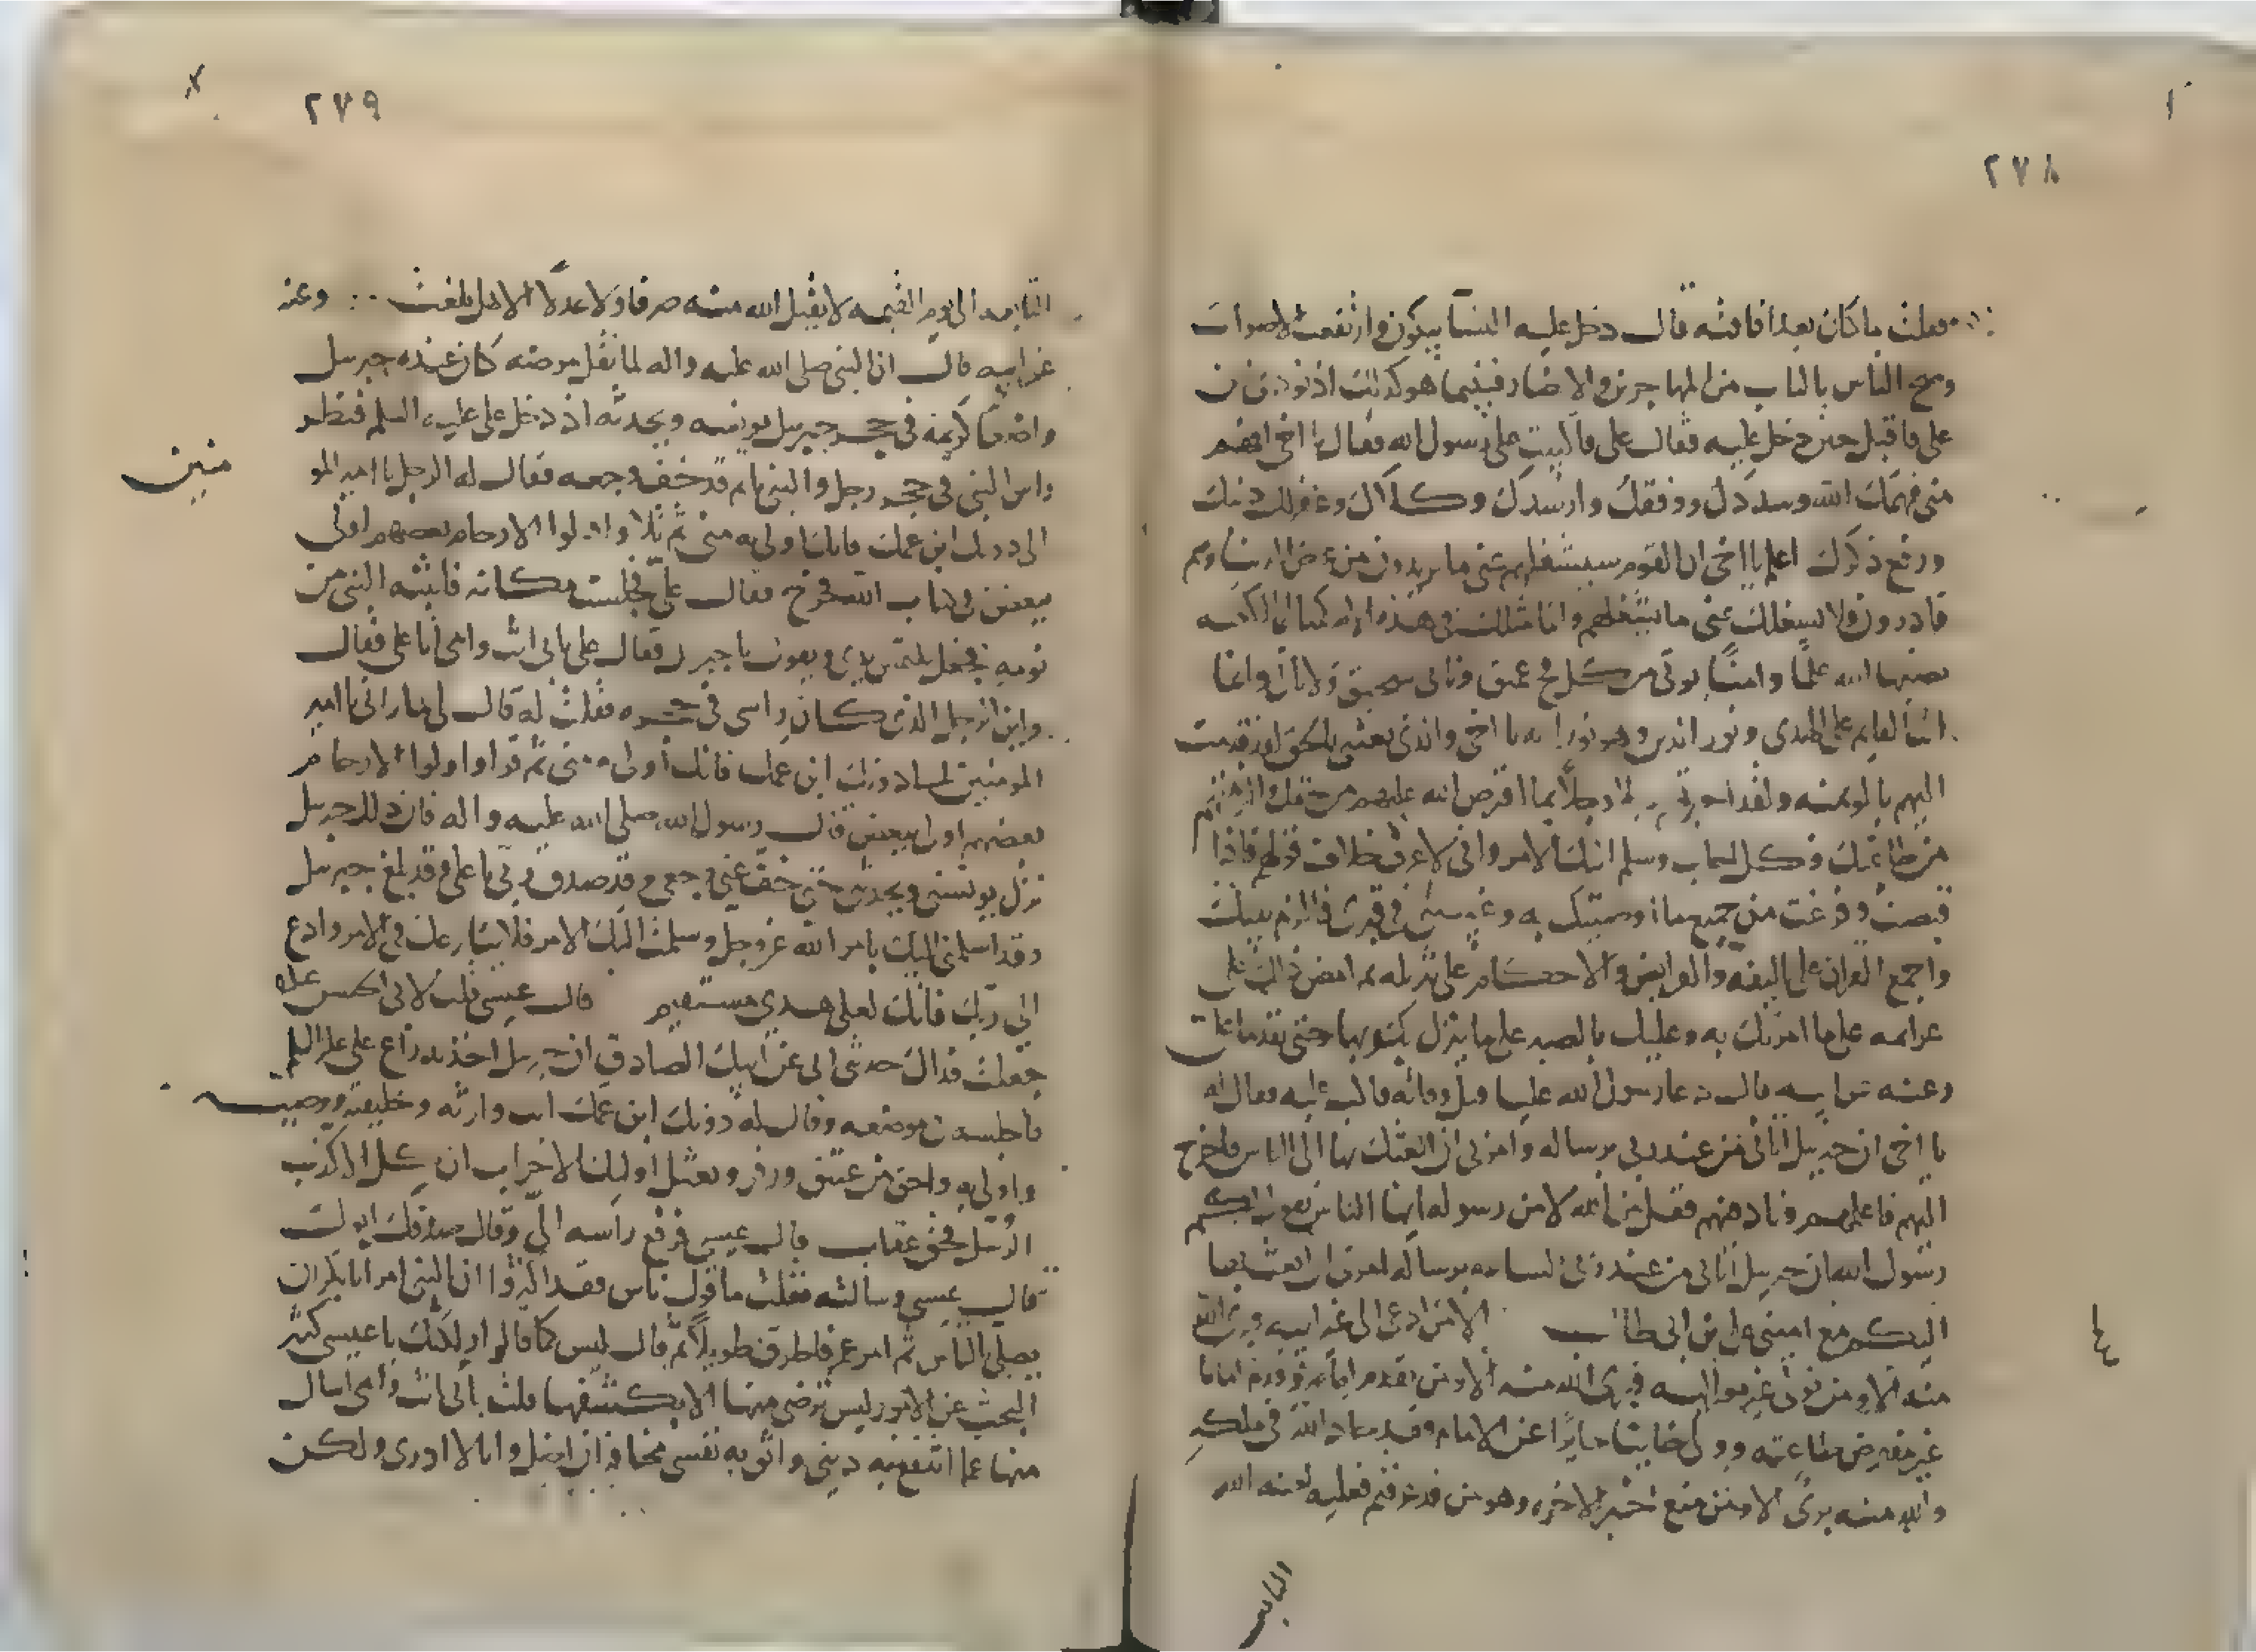 ٢٧٨
فقلت ما كان بعد افاقته قال دخل عليه النسا يبكون وارتفعت الاصوات
وضج الناس بالباب من المهاجرين والانصار فبينما هو كذلك اذ نودي اين
على فاقبل حتى دخل عليه فقال على فاكببت على رسول الله فقال يا اخى افهم
عنى فهمك الله وسددك ووفقك وارشدك وغفر لك ذنبك
ورفع ذكرك اعلم يا اخى ان القوم سيشغلهم عنى ما يريدون من عرض الدنيا وهم
قادرون فلا يشغلك عنى ما يشغلهم وانما مثلك فى هذه الامه كمثل الكعبه
نصبها الله علما وانما توتى من كل فج عميق ونأى سحيق ولا تاتى وانما
انت العلم علم الهدى ونور الدين وهو نور الله يا اخى والذى بعثنى بالحق لقد قدمت
اليهم بالوعيد ولقد اخبرت رجلا رجلا بما افترض الله عليهم من حقك والزمهم
من طاعتك فكل اجاب وسلم اليك الامر وانى لاعرف خلاف قولهم فاذا
قبضت وفرغت من جميع ما اوصيتك به وغيبتنى فى قبرى فالزم بيتك
واجمع القران على تاليفه والفرايض والاحكام على تنزيله ثم امض ذلك على
عزايمه على ما امرتك به وعليك بالصبر على ما ينزل بك وبها حتى تقدما على
وعنه عن ابيه قال دعا رسول الله عليا قبل وفاته فاكب عليه فقال له
يا اخى ان جبريل اتانى من عند ربى برساله وامرنى ان ابعثك بها الى الناس فاخرج
اليهم فاعلمهم وناد فيهم فقل من الله لا من رسوله ايها الناس يقول لكم
رسول الله ان جبريل اتانى من عند ربى الساعه برساله امرنى ان ابعث بها
اليكم مع امينى على بن ابى طالب الا من ادعى الى غير ابيه فبرى الله
منه الا ومن تولى غير مواليه فبرى الله منه الا ومن تقدم امامه وقدم اماما
غير مفترض طاعته وولى جايرا عن الامام فقد ضاد الله فى ملكه
والله منه برى الا ومن منع اجير اجرته وهو من قد عرفتم فعليه لعنه الله
٢٧٩
التابعه الى يوم القيمه لا يقبل الله منه صرفا ولا عدلا الا هل بلغت وعنه
عن ابيه قال ان النبى صلى الله عليه واله لما ثقل مرضه كان عنده جبرييل
واضعا كريمه فى حجر جبرييل يونسه ويحدثه اذ دخل على عليه السلم فنظر
راس النبى فى حجر رجل والنبى نايم قد خف وجعه فقال له الرجل يا امير المو
منين
الى دونك ابن عمك فانك اولى به منى ثم تلا واولوا الارحام بعضهم اولى
ببعض فى كتاب الله فخرج فقال على فجلست مكانه فانتبه النبى من
نومه فجعل يلتمس يدى ويقول يا جبريل فقال على بابى انت وامى انا على فقال
واين الرجل الذى كان راسى فى حجره فقلت له قال لى لما رانى يا امير
المومنين لى دونك ابن عمك فانك اولى به منى ثم قرا واولوا الارحام
بعضهم اولى ببعض فقال رسول الله صلى الله عليه واله فان ذلك جبرييل
نزل يونسنى ويحدثنى حتى خف عنى وجعى وقد صدق ربى يا على وقد بلغ جبرييل
وقد اسلمنى اليك بامر الله عز وجل وسلمت اليك الامر فلا ينازعنك فى الامر وادع
الى ربك فانك لعلى هدى مستقيم قال عيسى قلت لابى الحسن عله
جعلت فداك حدثنى ابى عن ابيك الصادق ان جبرييل اخذ بذراع على عليه السلم
فاجلسه فى موضعه وقال له دونك ابن عمك انت وارثه وخليفته ووصيه
واولى به واحق من عتيق وزفر ونعثل اوليك الاحزاب ان كل الا كذب
الرسل فحق عقاب قال عيسى فرفع راسه الى وقال صدقك ابوك
قال عيسى وسالته فقلت ما تقول ناس فقد اكثروا ان النبى امر ابا بكر ان
يصلى بالناس ثم امر عمر فاطرق طويلا ثم قال ليس كما قالوا ولكنك يا عيسى كثير
البحث عن الامور ليس ترضى منها الا بكشفها قلت بابى انت وامى اسال
منها عما انتفع به فى دينى واقوى به نفسى مخافه ان اضل وانا لا ادرى ولكن